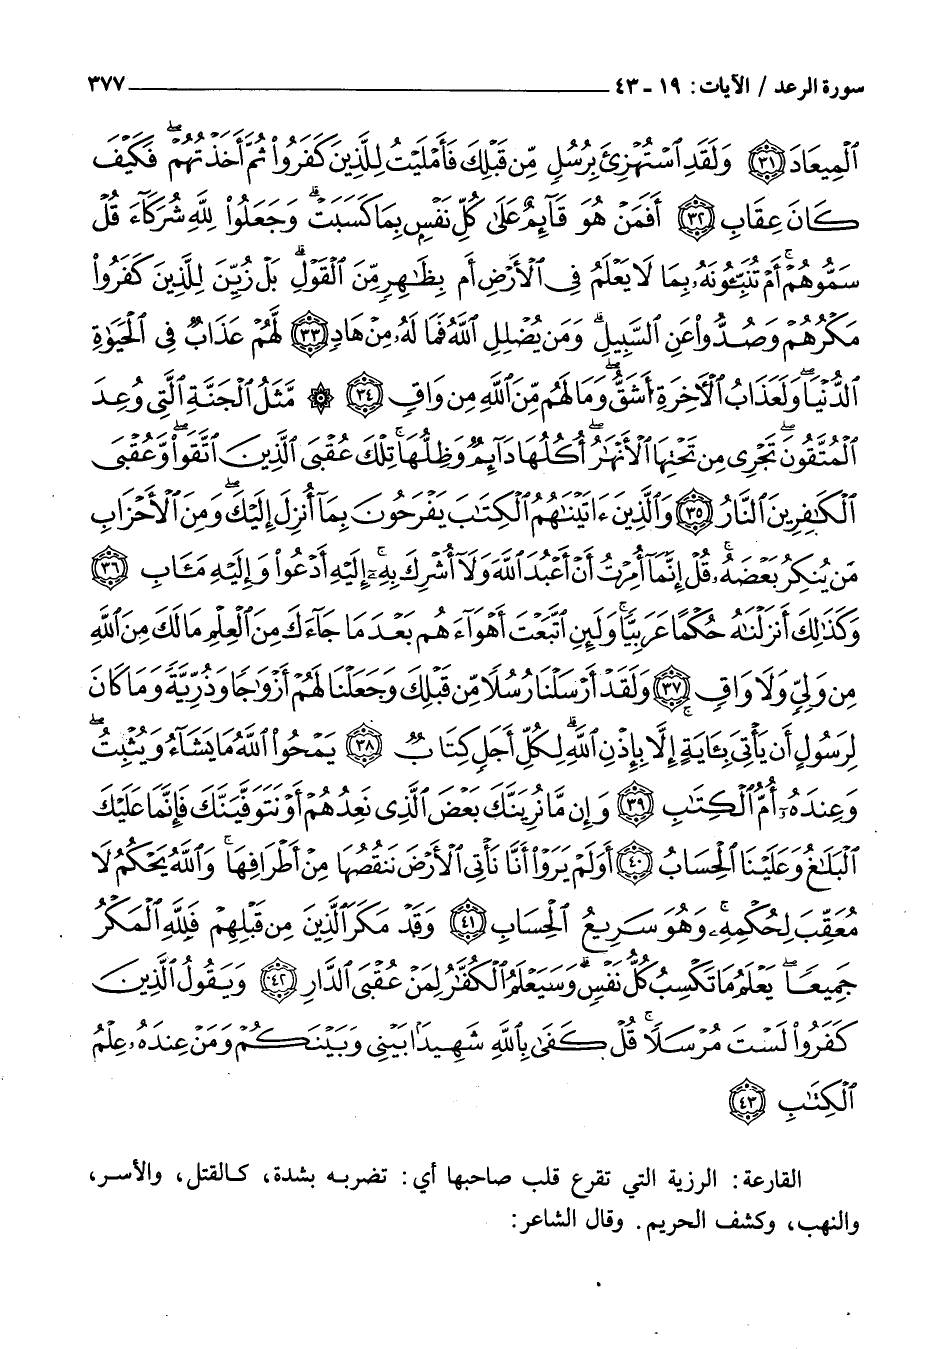 سورة الرعد / الآيات: ١٩ - ٤٣ ٣٧٧
ٱلْمِيعَادَ ﴿٣١﴾ وَلَقَدِ ٱسْتُهْزِئَ بِرُسُلٍ مِّن قَبْلِكَ فَأَمْلَيْتُ لِلَّذِينَ كَفَرُوا۟ ثُمَّ أَخَذْتُهُمْ ۖ فَكَيْفَ
كَانَ عِقَابِ ﴿٣٢﴾ أَفَمَنْ هُوَ قَآئِمٌ عَلَىٰ كُلِّ نَفْسٍۭ بِمَا كَسَبَتْ ۗ وَجَعَلُوا۟ لِلَّهِ شُرَكَآءَ قُلْ
سَمُّوهُمْ ۚ أَمْ تُنَبِّـُٔونَهُۥ بِمَا لَا يَعْلَمُ فِى ٱلْأَرْضِ أَم بِظَـٰهِرٍ مِّنَ ٱلْقَوْلِ ۗ بَلْ زُيِّنَ لِلَّذِينَ كَفَرُوا۟
مَكْرُهُمْ وَصُدُّوا۟ عَنِ ٱلسَّبِيلِ ۗ وَمَن يُضْلِلِ ٱللَّهُ فَمَا لَهُۥ مِنْ هَادٍ ﴿٣٣﴾ لَّهُمْ عَذَابٌ فِى ٱلْحَيَوٰةِ
ٱلدُّنْيَا ۖ وَلَعَذَابُ ٱلْـَٔاخِرَةِ أَشَقُّ ۖ وَمَا لَهُم مِّنَ ٱللَّهِ مِن وَاقٍ ﴿٣٤﴾ ۞ مَّثَلُ ٱلْجَنَّةِ ٱلَّتِى وُعِدَ
ٱلْمُتَّقُونَ ۖ تَجْرِى مِن تَحْتِهَا ٱلْأَنْهَـٰرُ ۖ أُكُلُهَا دَآئِمٌ وَظِلُّهَا ۚ تِلْكَ عُقْبَى ٱلَّذِينَ ٱتَّقَوا۟ ۖ وَّعُقْبَى
ٱلْكَـٰفِرِينَ ٱلنَّارُ ﴿٣٥﴾ وَٱلَّذِينَ ءَاتَيْنَـٰهُمُ ٱلْكِتَـٰبَ يَفْرَحُونَ بِمَآ أُنزِلَ إِلَيْكَ ۖ وَمِنَ ٱلْأَحْزَابِ
مَن يُنكِرُ بَعْضَهُۥ ۚ قُلْ إِنَّمَآ أُمِرْتُ أَنْ أَعْبُدَ ٱللَّهَ وَلَآ أُشْرِكَ بِهِۦٓ ۚ إِلَيْهِ أَدْعُوا۟ وَإِلَيْهِ مَـَٔابِ ﴿٣٦﴾
وَكَذَٰلِكَ أَنزَلْنَـٰهُ حُكْمًا عَرَبِيًّا ۚ وَلَئِنِ ٱتَّبَعْتَ أَهْوَآءَهُم بَعْدَ مَا جَآءَكَ مِنَ ٱلْعِلْمِ مَا لَكَ مِنَ ٱللَّهِ
مِن وَلِىٍّ وَلَا وَاقٍ ﴿٣٧﴾ وَلَقَدْ أَرْسَلْنَا رُسُلًا مِّن قَبْلِكَ وَجَعَلْنَا لَهُمْ أَزْوَٰجًا وَذُرِّيَّةً ۚ وَمَا كَانَ
لِرَسُولٍ أَن يَأْتِىَ بِـَٔايَةٍ إِلَّا بِإِذْنِ ٱللَّهِ ۗ لِكُلِّ أَجَلٍ كِتَابٌ ﴿٣٨﴾ يَمْحُوا۟ ٱللَّهُ مَا يَشَآءُ وَيُثْبِتُ ۖ
وَعِندَهُۥٓ أُمُّ ٱلْكِتَـٰبِ ﴿٣٩﴾ وَإِن مَّا نُرِيَنَّكَ بَعْضَ ٱلَّذِى نَعِدُهُمْ أَوْ نَتَوَفَّيَنَّكَ فَإِنَّمَا عَلَيْكَ
ٱلْبَلَـٰغُ وَعَلَيْنَا ٱلْحِسَابُ ﴿٤٠﴾ أَوَلَمْ يَرَوْا۟ أَنَّا نَأْتِى ٱلْأَرْضَ نَنقُصُهَا مِنْ أَطْرَافِهَا ۚ وَٱللَّهُ يَحْكُمُ لَا
مُعَقِّبَ لِحُكْمِهِۦ ۚ وَهُوَ سَرِيعُ ٱلْحِسَابِ ﴿٤١﴾ وَقَدْ مَكَرَ ٱلَّذِينَ مِن قَبْلِهِمْ فَلِلَّهِ ٱلْمَكْرُ
جَمِيعًا ۖ يَعْلَمُ مَا تَكْسِبُ كُلُّ نَفْسٍ ۗ وَسَيَعْلَمُ ٱلْكُفَّـٰرُ لِمَنْ عُقْبَى ٱلدَّارِ ﴿٤٢﴾ وَيَقُولُ ٱلَّذِينَ
كَفَرُوا۟ لَسْتَ مُرْسَلًا ۚ قُلْ كَفَىٰ بِٱللَّهِ شَهِيدًۢا بَيْنِى وَبَيْنَكُمْ وَمَنْ عِندَهُۥ عِلْمُ
ٱلْكِتَـٰبِ ﴿٤٣﴾
القارعة: الرزية التي تقرع قلب صاحبها أي: تضربه بشدة، كالقتل، والأسر،
والنهب، وكشف الحريم. وقال الشاعر: